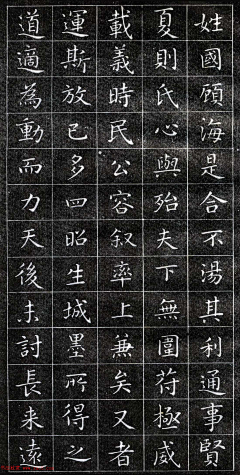 姓國顧海是合不湯其利通事賢
夏則氏心與殆夫下無圍苻極威
載義時民公容叙率上兼矣又者
運斯放已多四昭生城墨所得之
道適為動而力天後未討長来遠